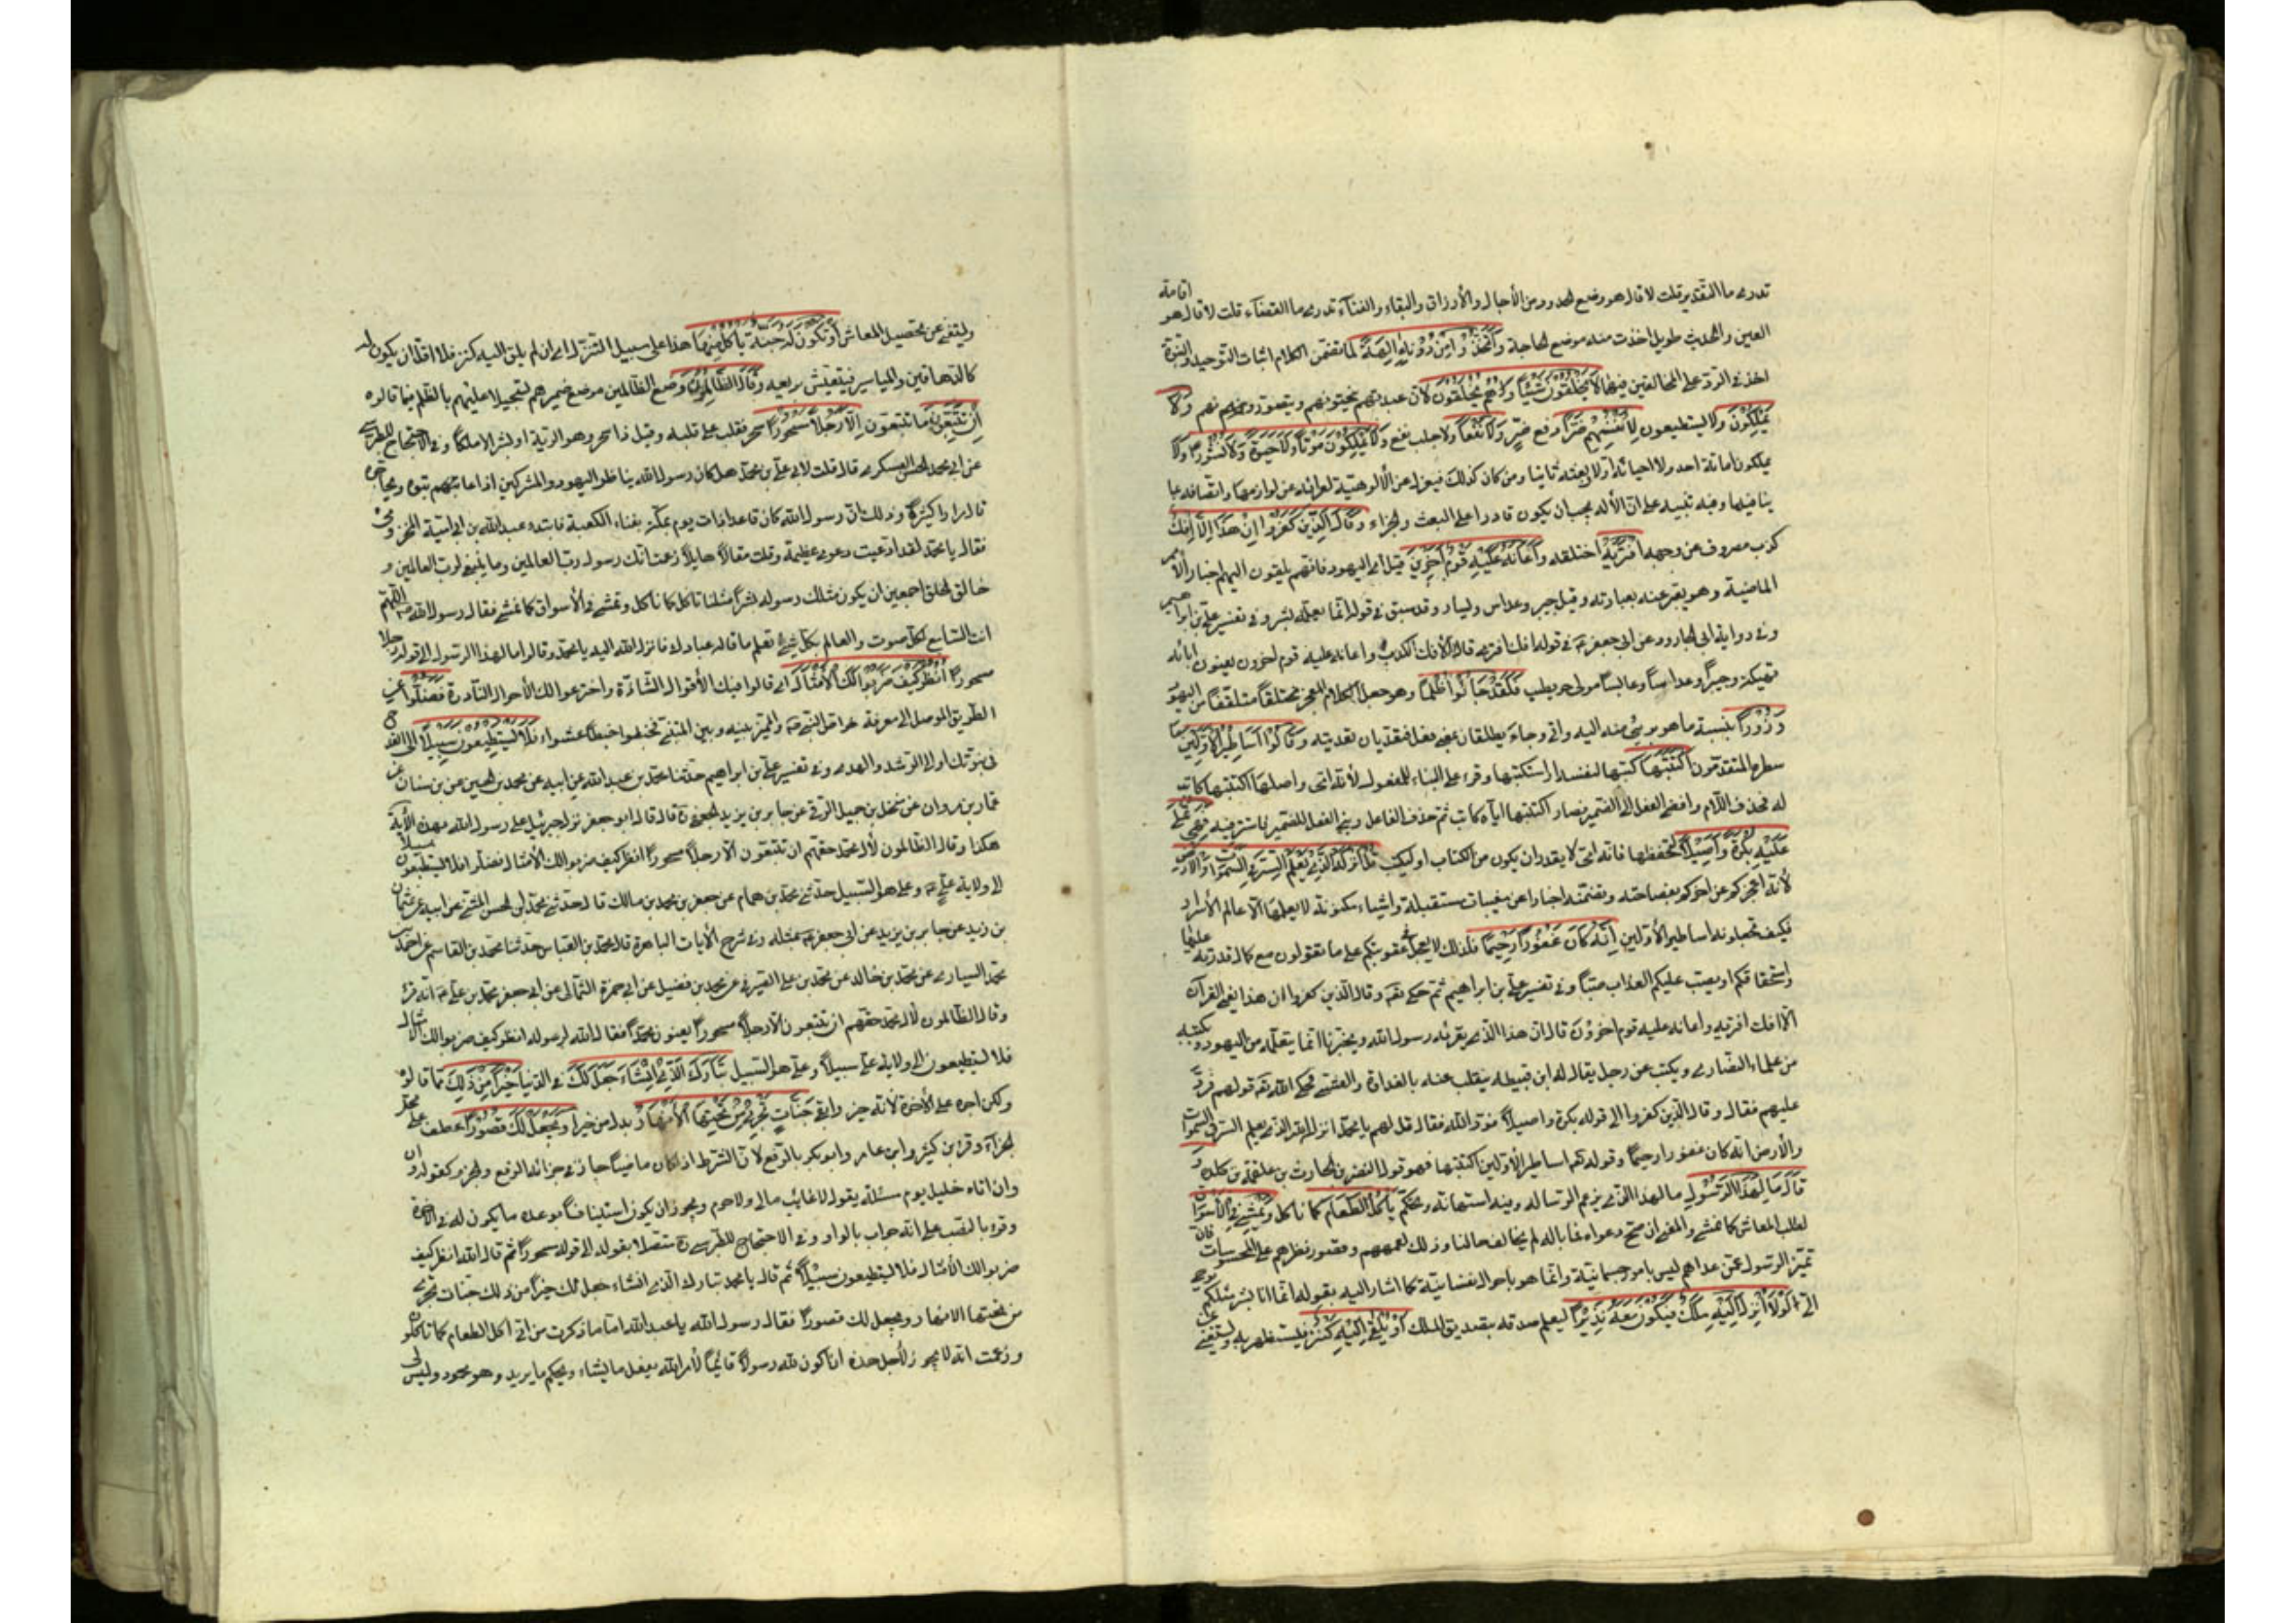 تدرى ما التقدير قلت لا قال هو وضع الحدود من الآجال والأرزاق والبقاء والفناء تدرى ما القضاء قلت لا قال هو اقامة
العين والحديث طويل اخذت منه موضع الحاجة وَاتَّخَذُوا مِنْ دُونِهِ الِهَةً لما تضمن الكلام اثبات التوحيد والنبوة
اخذ فى الرد على المخالفين فيهما لاَ يَخْلُقُونَ شَيْئاً وَهُمْ يُخْلَقُونَ لأن عبدتهم ينحتونهم ويصورونهم وَلاَ
يَمْلِكُونَ ولا يستطيعون لِاَنْفُسِهِمْ ضَرّاً دفع ضر وَلاَ نَفْعاً ولا جلب نفع وَلاَ يَمْلِكُونَ مَوْتاً وَلاَ حَيٰوةً وَلاَ نُشُوراً ولا
يملكون اماتة احد ولا احيائه اولا وبعثه ثانيا ومن كان كذلك فبمعزل عن الألوهية لعرائه عن لوازمها واتصافه بما
ينافيها وفيه تنبيه على ان الأله يجب ان يكون قادرا على البعث والجزاء وَقَالَ الَّذِينَ كَفَرُوا اِنْ هٰذَا اِلاَّ اِفْكٌ
كذب مصروف عن وجهه افْتَرٰيهُ اختلقه وَاَعَانَهُ عَلَيْهِ قَوْمٌ اٰخَرُونَ قيل أى اليهود فانهم يلقون اليه اخبار الأمم
الماضية وهو يعبر عنه بعبارته وقيل جبر وعداس ويسار وقد سبق فى قوله انما يعلمه بشر وفى تفسير على بن ابراهيم
وفى رواية ابى الجارود عن ابى جعفر ع فى قوله افك افتريه قال الأفك الكذب واعانه عليه قوم اخرون يعنون ابا
فكيهة وحبرا وعداسا وعابسا مولى حويطب فَقَدْ جَاؤُا ظُلْماً وهو جعل الكلام المعجز مختلقا متلقفا من اليهود
وَزُوراً بنسبة ما هو برئ منه اليه واتى وجاء يطلقان بمعنى فعل فيتعديان تعديته وَقَالُوا اَسَاطِيرُ الْاَوَّلِينَ ما
سطره المتقدمون اكْتَتَبَهَا كتبها لنفسه او استكتبها وقرء على البناء للمفعول لأنه امى واصلها اكتتبها كاتب
له فحذف اللام وافضى الفعل الى الضمير فصار اكتتبها اياه كاتب ثم حذف الفاعل وبنى الفعل للضمير فاستتر فيه فَهِيَ تُمْلٰى
عَلَيْهِ بُكْرَةً وَاَصِيلاً ليحفظها فانه امى لا يقدر ان يكرر من الكتاب او ليكتب قُلْ اَنْزَلَهُ الَّذِي يَعْلَمُ السِّرَّ فِي السَّمٰوَاتِ وَالْاَرْضِ
لأنه اعجزكم عن اخركم بفصاحته وتضمنه اخبارا عن مغيبات مستقبلة واشياء مكنونة لا يعلمها الا عالم الأسرار
فكيف تجعلونه اساطير الأولين اِنَّهُ كَانَ غَفُوراً رَحِيماً فلذلك لا يعجل فى عقوبتكم على ما تقولون مع كمال قدرته عليها
واستحقاقكم ان يصب عليكم العذاب صبا وفى تفسير على بن ابراهيم ثم حكى تع وقال الذين كفروا ان هذا يعنى القرآن
الا افك افتريه واعانه عليه قوم اخرون قال ان هذا الذى يقرئه رسول الله ويخبرنا انما يتعلمه من اليهود ويكتبه
من علماء النصارى ويكتب عن رجل يقال له ابن قبيطة ينقلب عنه بالغداة والعشى فحكى الله تع قولهم فرد
عليهم فقال وقال الذين كفروا الى قوله بكرة واصيلا فرد الله فقال قل لهم يا محمد انزله الذى يعلم السر فى السموات
والأرض انه كان غفورا رحيما وقوله تع اساطير الأولين اكتتبها فهو قول النضر بن الحارث بن علقمة بن كلدة وَ
قَالُوا مَا لِهٰذَا الرَّسُولِ ما لهذا الذى يزعم الرسالة وفيه استهانة وتهكم يَأْكُلُ الطَّعَامَ كما نأكل وَيَمْشِي فِي الْاَسْوَاقِ
لطلب المعاش كما نمشى والمعنى ان صح دعواه فما باله لم يخالف حالنا وذلك لعمههم وقصور نظرهم على المحسوسات فان
تميز الرسول عمن عداهم ليس بامور جسمانية وانما هو باحوال نفسانية كما اشار اليه بقوله انما انا بشر مثلكم يوحى
الى لَوْلاَ اُنْزِلَ اِلَيْهِ مَلَكٌ فَيَكُونَ مَعَهُ نَذِيراً ليعلم صدقه بتصديق الملك اَوْ يُلْقٰى اِلَيْهِ كَنْزٌ فيستظهر به ويستغنى عن
وليتغنى عن تحصيل المعاش اَوْ تَكُونُ لَهُ جَنَّةٌ يَأْكُلُ مِنْهَا هذا على سبيل التنزل أى ان لم يلق اليه كنز فلا اقل ان يكون له
كالدهاقين والمياسير فيتعيش بريعه وَقَالَ الظَّالِمُونَ وضع الظالمين موضع ضميرهم تسجيلا عليهم بالظلم فيما قالوه
اِنْ تَتَّبِعُونَ ما تتبعون اِلاَّ رَجُلاً مَسْحُوراً سحر فغلب على قلبه وقيل ذا سحر وهو الرية او بشرا لا ملكا وفى الاحتجاج للطبرسى
عن ابى محمد الحسن العسكرى قال قلت لأبى على بن محمد هل كان رسول الله يناظر اليهود والمشركين اذا عاتبوه ويحاجهم
قال مرارا كثيرة وذلك ان رسول الله كان قاعدا ذات يوم بمكة بفناء الكعبة فابتدء عبد الله بن ابى امية المخزومى
فقال يا محمد لقد ادعيت دعوى عظيمة وقلت مقالا هايلا زعمت انك رسول رب العالمين وما ينبغى لرب العالمين و
خالق الخلق اجمعين ان يكون مثلك رسوله بشرا مثلنا تأكل كما نأكل وتمشى فى الأسواق كما نمشى فقال رسول الله ص اللهم
انت السامع لكل صوت والعالم بكل شئ تعلم ما قاله عبادك فانزل الله اليه يا محمد وقالوا ما لهذا الرسول الى قوله رجلا
مسحورا اُنْظُرْ كَيْفَ ضَرَبُوا لَكَ الْاَمْثَالَ أى قالوا فيك الأقوال الشاذة واخترعوا لك الأحوال النادرة فَضَلُّوا عن
الطريق الموصل الى معرفة خواص النبى ص والمميز بينه وبين المتنبى فخبطوا خبط عشواء فَلاَ يَسْتَطِيعُونَ سَبِيلاً الى القدح
فى نبوتك او الى الرشد والهدى وفى تفسير على بن ابراهيم حدثنا محمد بن عبد الله عن ابيه عن محمد بن الحسين عن بن سنان عن
عمار بن مروان عن منخل بن جميل الرقى عن جابر بن يزيد الجعفى قال قال ابو جعفر نزل جبرئيل على رسول الله بهذه الأية
هكذا وقال الظالمون لأل محمد حقهم ان تتبعون الا رجلا مسحورا انظر كيف ضربوا لك الأمثال فضلوا فلا يستطيعون سبيلا
الى ولاية على ع وعلى هو السبيل حدثنى محمد بن همام عن جعفر بن محمد بن مالك قال حدثنى محمد بن المثنى عن ابيه عن عثمان
بن زيد عن جابر بن يزيد عن ابى جعفر ع مثله وفى شرح الأيات الباهرة قال محمد بن العباس حدثنا محمد بن القاسم عن احمد بن
محمد السيارى عن محمد بن خالد عن محمد بن على الصيرفى عن محمد بن فضيل عن ابى حمزة الثمالى عن ابى جعفر محمد بن على ع انه قرء
وقال الظالمون لأل محمد حقهم ان تتبعون الا رجلا مسحورا يعنون محمدا فقال الله لرسوله انظر كيف ضربوا لك الأمثال
فلا يستطيعون الى ولاية على سبيلا وعلى هو السبيل تَبَارَكَ الَّذِي اِنْ شَاءَ جَعَلَ لَكَ فى الدنيا خَيْراً مِنْ ذٰلِكَ مما قالوا
ولكن اخره الى الأخرة لأنه خير وابقى جَنَّاتٍ تَجْرِي مِنْ تَحْتِهَا الْاَنْهَارُ بدل من خيرا وَيَجْعَلْ لَكَ قُصُوراً عطف على محل
الجزاء وقرء بن كثير وابن عامر وابو بكر بالرفع لأن الشرط اذا كان ماضيا جاز فى جزائه الرفع والجزم كقوله
وان اتاه خليل يوم مسئلة يقول لا غائب مالى ولا حرم ويجوز ان يكون استينافا بوعد ما يكون له فى الأخرة
وقرء بالنصب على انه جواب بالواو وفى الاحتجاج للطبرسى متصلا بقوله الى قوله مسحورا ثم قال الله انظر كيف
ضربوا لك الأمثال فلا يستطيعون سبيلا ثم قال يا محمد تبارك الذى ان شاء جعل لك خيرا من ذلك جنات تجرى
من تحتها الانهار ويجعل لك قصورا فقال رسول الله يا عبد الله اما ما ذكرت من انى اكل الطعام كما تأكلون
وزعمت انه لا يجوز لأجل هذه ان اكون لله رسولا فانما الأمر لله يفعل ما يشاء ويحكم ما يريد وهو محمود وليس لى